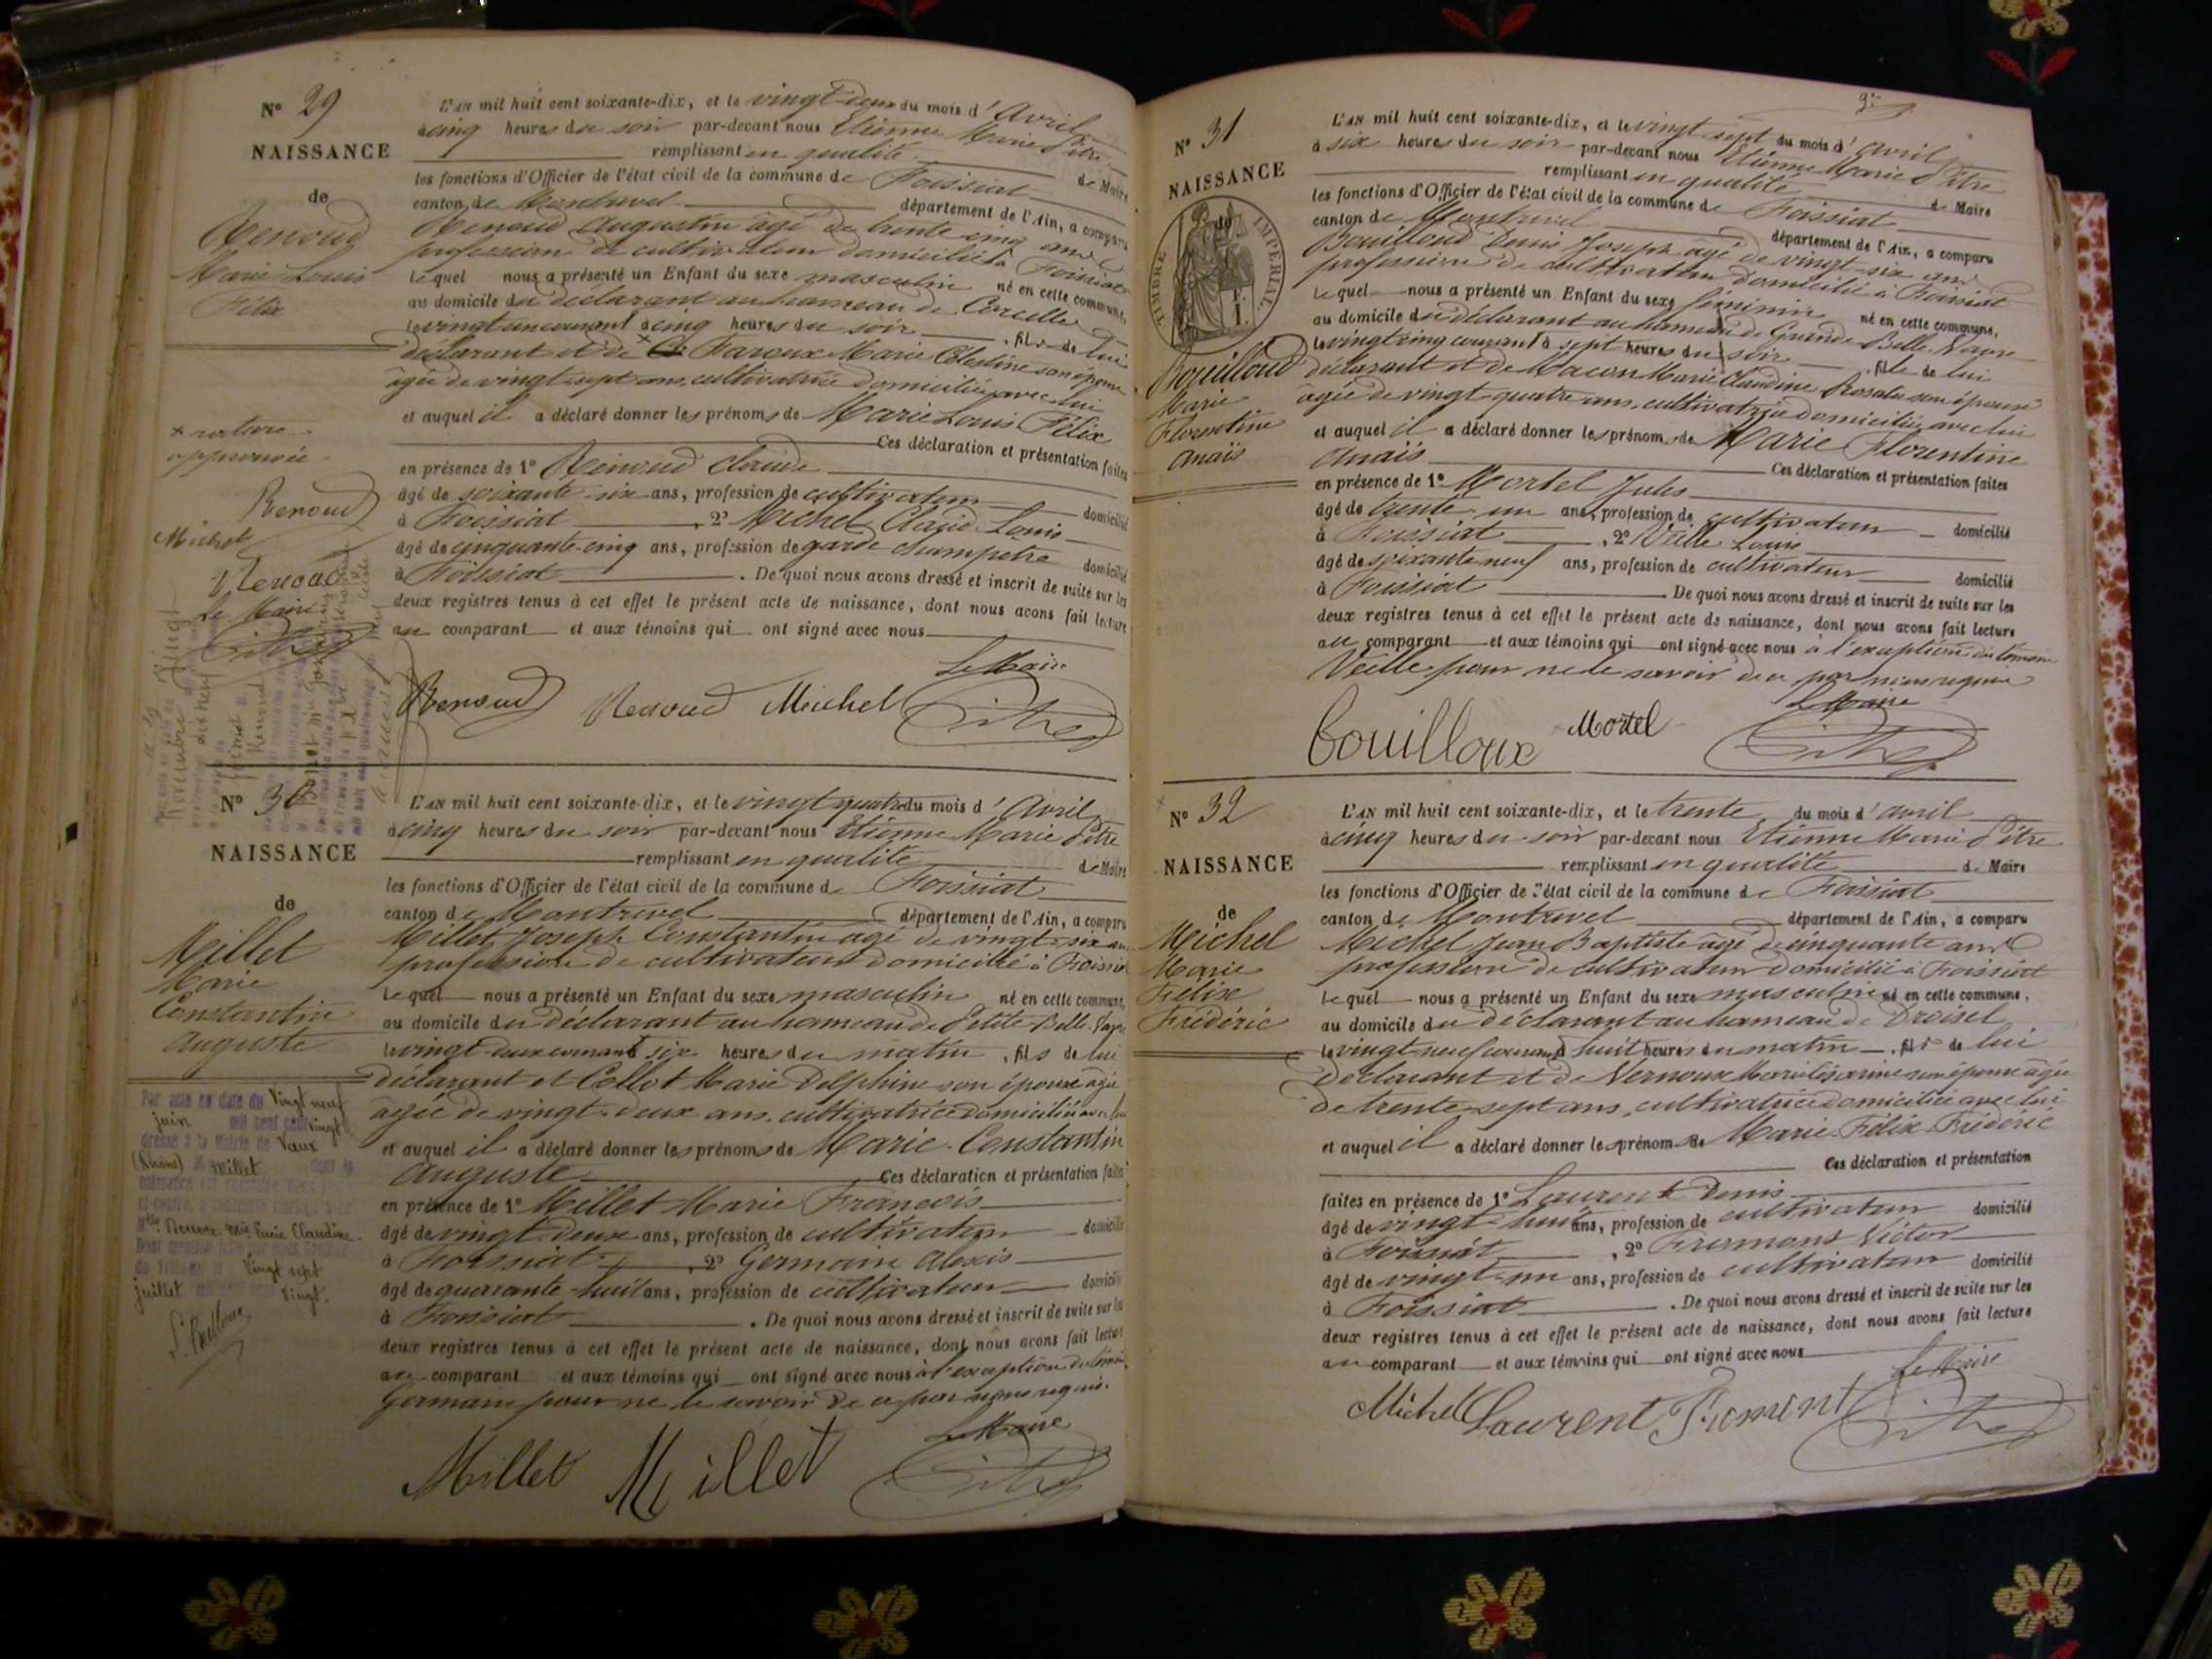 N° 29
NAISSANCE
de
Renoud
Marie Louis
Félix
L'AN mil huit cent soixante-dix, et le vingt-deux du mois d'Avril
à cinq heures du soir par-devant nous Etienne Marie Pitre
remplissant en qualité de Maire
les fonctions d'Officier de l'état civil de la commune de Foissiat
canton de Montrevel département de l'Ain, a comparu
Renoud Augustin âgé de trente cinq ans
profession de cultivateur domicilié à Foissiat
lequel nous a présenté un Enfant du sexe masculin né en cette commune,
au domicile du déclarant au hameau de Corcelles
le vingt un courant à cinq heures du soir, fils de lui
déclarant et de Faroux Marie Célestine son épouse
âgée de vingt-sept ans, cultivatrice domiciliée avec lui
et auquel il a déclaré donner les prénoms de Marie Louis Félix
Ces déclaration et présentation faites
en présence de 1° Renoud Claude
âgé de soixante-six ans, profession de cultivateur domicilié
à Foissiat, 2° Michel Louis
âgé de cinquante-cinq ans, profession de garde champetre domicilié
à Foissiat. De quoi nous avons dressé et inscrit de suite sur les
deux registres tenus à cet effet le présent acte de naissance, dont nous avons fait lecture
au comparant et aux témoins qui ont signé avec nous
Le Maire
Renoud Renoud Michel Pitre
+ rature
approuvée
Renoud
Michel
Renoud
Le Maire
Pitre
N° 30
NAISSANCE
de
Millet
Marie
Constantin
Auguste
L'AN mil huit cent soixante-dix, et le vingt quatre du mois d'Avril
à cinq heures du soir par-devant nous Etienne Marie Pitre
remplissant en qualité de Maire
les fonctions d'Officier de l'état civil de la commune de Foissiat
canton de Montrevel département de l'Ain, a comparu
Millet Joseph Constantin âgé de vingt-six ans
profession de cultivateur domicilié à Foissiat
lequel nous a présenté un Enfant du sexe masculin né en cette commune,
au domicile du déclarant au hameau de Petite Belle
le vingt-deux courant à six heures du matin, fils de lui
déclarant et Collot Marie Delphine son épouse âgée
âgée de vingt-deux ans, cultivatrice domiciliée avec lui
et auquel il a déclaré donner les prénoms de Marie Constantin
Auguste Ces déclaration et présentation faites
en présence de 1° Millet Marie François
âgé de vingt-deux ans, profession de cultivateur domicilié
à Foissiat, 2° Germain Alexis
âgé de quarante-huit ans, profession de cultivateur domicilié
à Foissiat. De quoi nous avons dressé et inscrit de suite sur les
deux registres tenus à cet effet le présent acte de naissance, dont nous avons fait lecture
au comparant et aux témoins qui ont signé avec nous à l'exception du témoin
Germain pour ne le savoir de ce par nous requis.
Le Maire
Millet Millet Pitre
Par acte en date du Vingt neuf
juin mil neuf cent vingt
dressé à la Mairie de Vaux
(Rhône) Millet
Marie Claudine
Vingt sept
juillet vingt.
N° 31
NAISSANCE
de
TIMBRE IMPERIAL
Bouilloud
Marie
Florentine
Anaïs
L'AN mil huit cent soixante-dix, et le vingt-sept du mois d'avril
à six heures du soir par-devant nous Etienne Marie Pitre
remplissant en qualité de Maire
les fonctions d'Officier de l'état civil de la commune de Foissiat
canton de Montrevel département de l'Ain, a comparu
Bouilloud Denis Joseph âgé de vingt-six ans
profession de cultivateur domicilié à Foissiat
lequel nous a présenté un Enfant du sexe féminin né en cette commune,
au domicile du déclarant au hameau de Grande Belle
le vingt-cinq courant à sept heures du soir, fille de lui
déclarant et de Macon Marie Claudine Rosalie son épouse
âgée de vingt-quatre ans, cultivatrice domiciliée avec lui
et auquel il a déclaré donner les prénoms de Marie Florentine
Anaïs Ces déclaration et présentation faites
en présence de 1° Mortel Jules
âgé de trente un ans, profession de cultivateur domicilié
à Foissiat, 2° Veille Louis
âgé de soixante neuf ans, profession de cultivateur domicilié
à Foissiat. De quoi nous avons dressé et inscrit de suite sur les
deux registres tenus à cet effet le présent acte de naissance, dont nous avons fait lecture
au comparant et aux témoins qui ont signé avec nous à l'exception du témoin
Veille pour ne le savoir de ce par nous requis
Le Maire
bouilloux Mortel Pitre
N° 32
NAISSANCE
de
Michel
Marie
Félix
Frédéric
L'AN mil huit cent soixante-dix, et le trente du mois d'avril
à cinq heures du soir par-devant nous Etienne Marie Pitre
remplissant en qualité de Maire
les fonctions d'Officier de l'état civil de la commune de Foissiat
canton de Montrevel département de l'Ain, a comparu
Michel Jean Baptiste âgé de cinquante ans
profession de cultivateur domicilié à Foissiat
lequel nous a présenté un Enfant du sexe masculin né en cette commune,
au domicile du déclarant au hameau de Droisel
le vingt-neuf courant à huit heures du matin, fils de lui
déclarant et de Vernoux Marie son épouse âgée
de trente-sept ans, cultivatrice domiciliée avec lui
et auquel il a déclaré donner les prénoms de Marie Félix Frédéric
Ces déclaration et présentation
faites en présence de 1° Laurent Denis
âgé de vingt-huit ans, profession de cultivateur domicilié
à Foissiat, 2° Fromont Victor
âgé de vingt-un ans, profession de cultivateur domicilié
à Foissiat. De quoi nous avons dressé et inscrit de suite sur les
deux registres tenus à cet effet le présent acte de naissance, dont nous avons fait lecture
au comparant et aux témoins qui ont signé avec nous
Le Maire
Michel Laurent Fromont Pitre